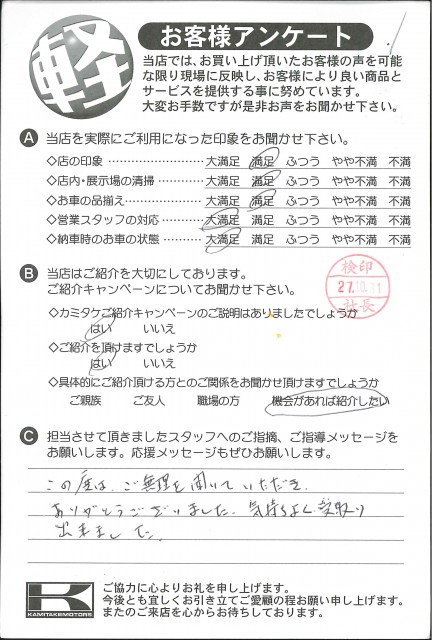 軽
お客様アンケート
当店では、お買い上げ頂いたお客様の声を可能
な限り現場に反映し、お客様により良い商品と
サービスを提供する事に努めています。
大変お手数ですが是非お声をお聞かせ下さい。
A 当店を実際にご利用になった印象をお聞かせ下さい。
◇店の印象 大満足 満足 ふつう やや不満 不満
◇店内・展示場の清掃 大満足 満足 ふつう やや不満 不満
◇お車の品揃え 大満足 満足 ふつう やや不満 不満
◇営業スタッフの対応 大満足 満足 ふつう やや不満 不満
◇納車時のお車の状態 大満足 満足 ふつう やや不満 不満
B 当店はご紹介を大切にしております。
ご紹介キャンペーンについてお聞かせ下さい。
検印
27.10.31
社長
◇カミタケご紹介キャンペーンのご説明はありましたでしょうか
はい いいえ
◇ご紹介を頂けますでしょうか
はい いいえ
◇具体的にご紹介頂ける方とのご関係をお聞かせ頂けますでしょうか
ご親族 ご友人 職場の方 機会があれば紹介したい
C 担当させて頂きましたスタッフへのご指摘、ご指導メッセージを
お願いします。応援メッセージもぜひお願いします。
この度は、ご無理を聞いていただき、
ありがとうございました。気持ちよく受取り
出来ました。
K
KAMITAKEMOTORS
ご協力に心よりお礼を申し上げます。
今後とも宜しくお引き立てご愛顧の程お願い申し上げます。
またのご来店を心からお待ちしております。